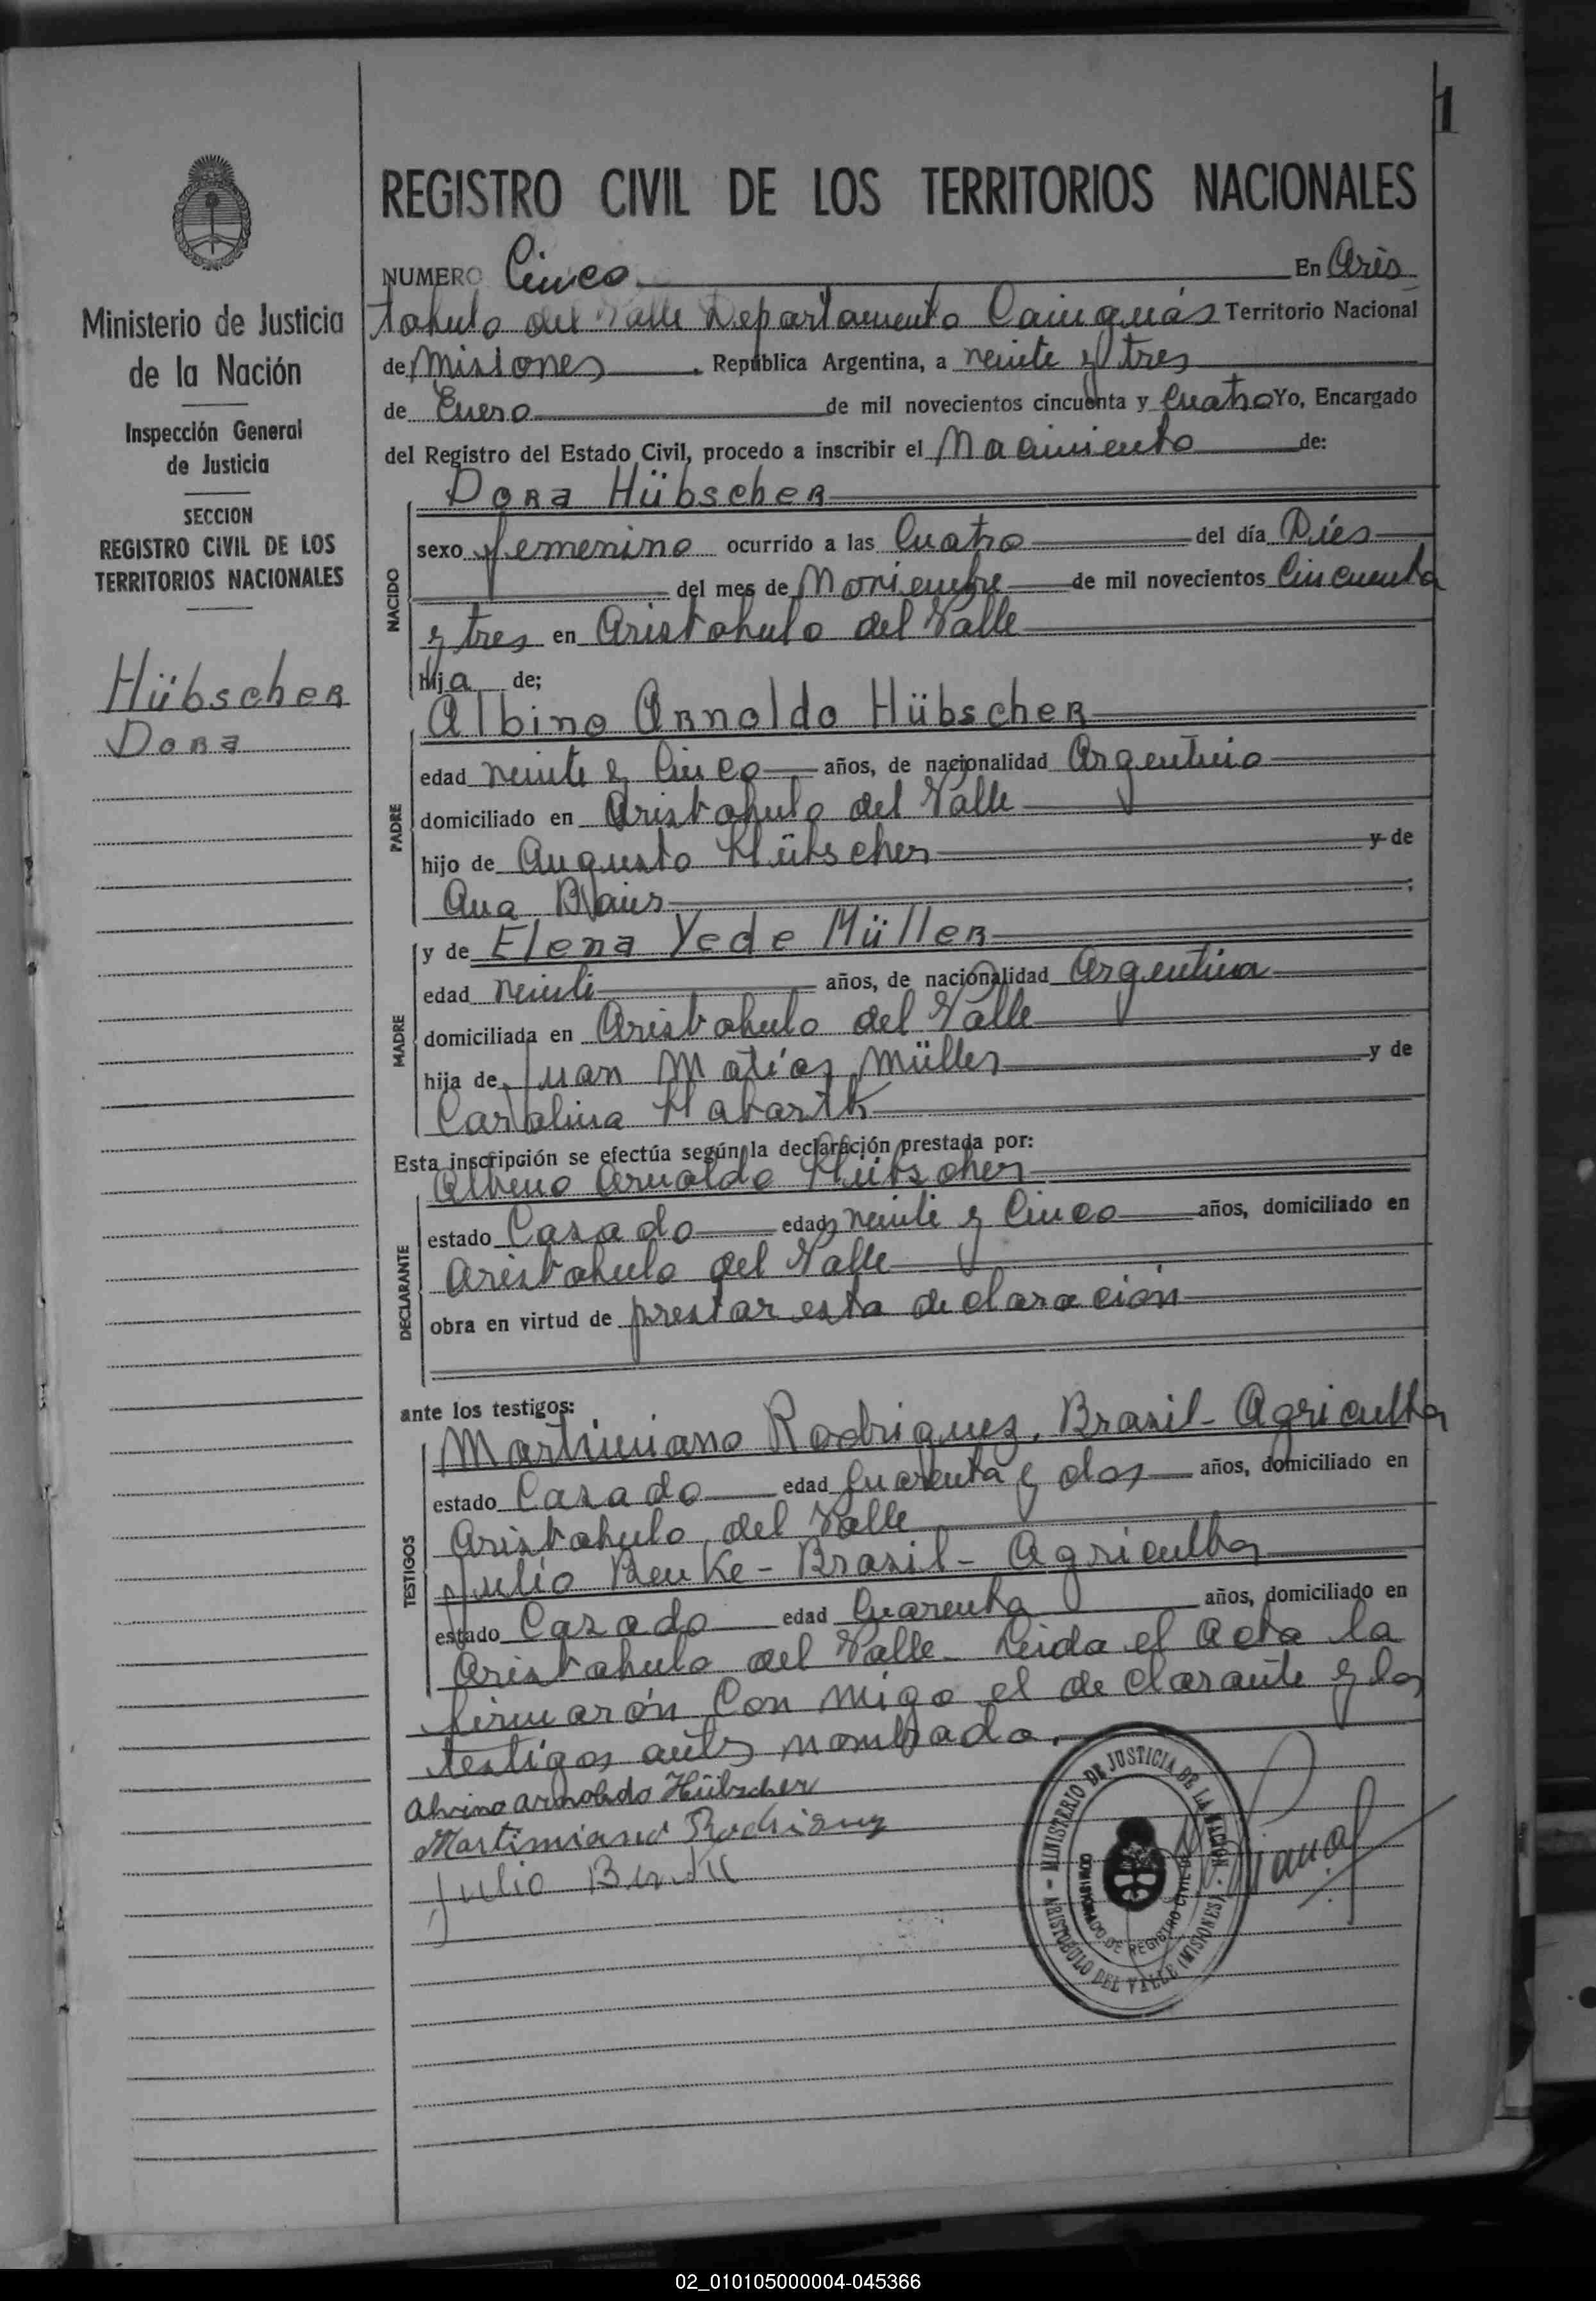 1
REGISTRO CIVIL DE LOS TERRITORIOS NACIONALES
NUMERO Cinco En Aris
tobulo del Valle Departamento Cainguás Territorio Nacional
de Misiones República Argentina, a veinte y tres
de Enero de mil novecientos cincuenta y Cuatro Yo, Encargado
del Registro del Estado Civil, procedo a inscribir el Nacimiento de:
Dora Hübscher
sexo femenino ocurrido a las Cuatro del día Diés
del mes de Noviembre de mil novecientos Cincuenta
y tres en Aristobulo del Valle
Hija de;
Albino Arnoldo Hübscher
edad veinte y Cinco años, de nacionalidad Argentino
domiciliado en Aristobulo del Valle
hijo de Augusto Hübscher y de
Ana ;
y de Elena Yede Müller
edad veinte años, de nacionalidad Argentina
domiciliada en Aristobulo del Valle
hija de Juan Matías Müller y de
Carolina
Esta inscripción se efectúa según la declaración prestada por:
Albino Arnoldo Hübscher
estado Casado edad veinte y Cinco años, domiciliado en
Aristobulo del Valle
obra en virtud de prestar esta declaración
ante los testigos:
Martimiano Rodriguez, Brasil - Agricultor
estado Casado edad Cuarenta y dos años, domiciliado en
Aristobulo del Valle
Julio Benke - Brasil - Agricultor
estado Casado edad Cuarenta años, domiciliado en
Aristobulo del Valle - Leida el Acta la
firmarón Con migo el declarante y los
testigos antes nombrado.
Alvino Arnoldo Hübscher
Martimiano Rodriguez
Julio
MINISTERIO DE JUSTICIA DE LA NACION
ENCARGADO DE REGISTRO CIVIL
ARISTOBULO DEL VALLE (MISIONES)
NACIDO
PADRE
MADRE
DECLARANTE
TESTIGOS
Ministerio de Justicia
de la Nación
Inspección General
de Justicia
SECCION
REGISTRO CIVIL DE LOS
TERRITORIOS NACIONALES
Hübscher
Dora
02_010105000004-045366